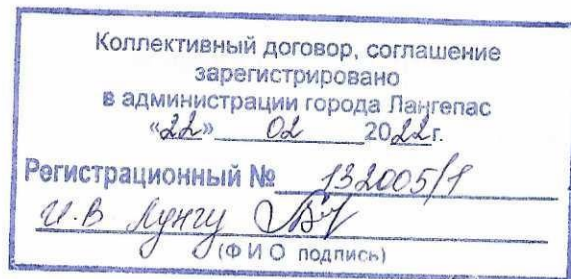 Коллективный договор, соглашение
зарегистрировано
в администрации города Лангепас
«22» 02 2022г.
Регистрационный № 132005/1
И.В Лунгу
(Ф И О подпись)